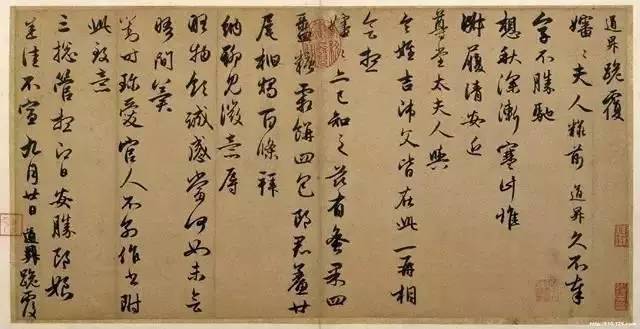 道昇跪覆
嬸嬸夫人糚前道昇久不奉
字不勝馳
想秋深漸寒計惟
淑履清安近
尊堂太夫人與
令姪吉師父皆在此一再相
會想
嬸嬸亦已知之茲有蜜菓四
盝糖霜餅四包郎君鮝廿
尾柏燭百條拜
納聊見微意辱
物領誠感當何如未會
晤間冀
對時珍愛官人不别作書附
此致意
三總管想即日安勝郎娘
悉佳不宣九月廿日道昇跪覆